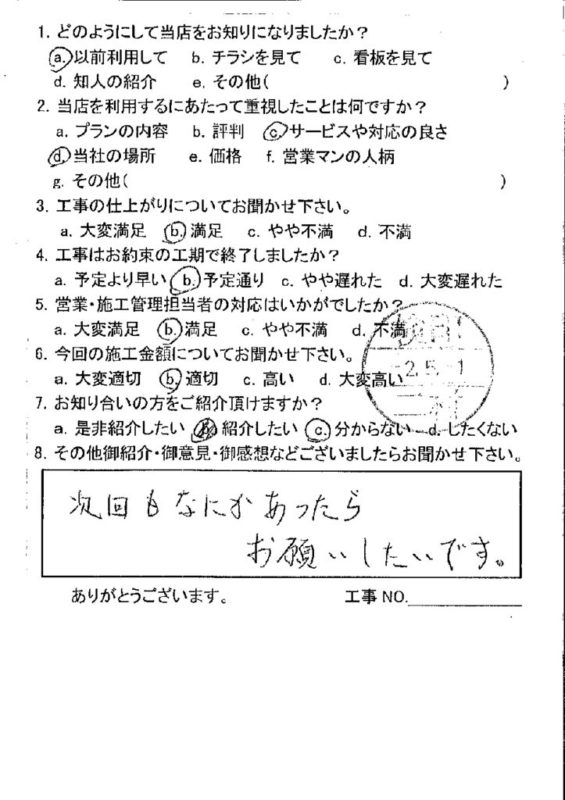 1. どのようにして当店をお知りになりましたか？
a. 以前利用して b. チラシを見て c. 看板を見て
d. 知人の紹介 e. その他( )
2. 当店を利用するにあたって重視したことは何ですか？
a. プランの内容 b. 評判 c. サービスや対応の良さ
d. 当社の場所 e. 価格 f. 営業マンの人柄
g. その他( )
3. 工事の仕上がりについてお聞かせ下さい。
a. 大変満足 b. 満足 c. やや不満 d. 不満
4. 工事はお約束の工期で終了しましたか？
a. 予定より早い b. 予定通り c. やや遅れた d. 大変遅れた
5. 営業・施工管理担当者の対応はいかがでしたか？
a. 大変満足 b. 満足 c. やや不満 d. 不満
6. 今回の施工金額についてお聞かせ下さい。
a. 大変適切 b. 適切 c. 高い d. 大変高い
2.5.1
7. お知り合いの方をご紹介頂けますか？
a. 是非紹介したい b. 紹介したい c. 分からない d. したくない
8. その他御紹介・御意見・御感想などございましたらお聞かせ下さい。
次回もなにかあったら
お願いしたいです。
ありがとうございます。 工事 NO.